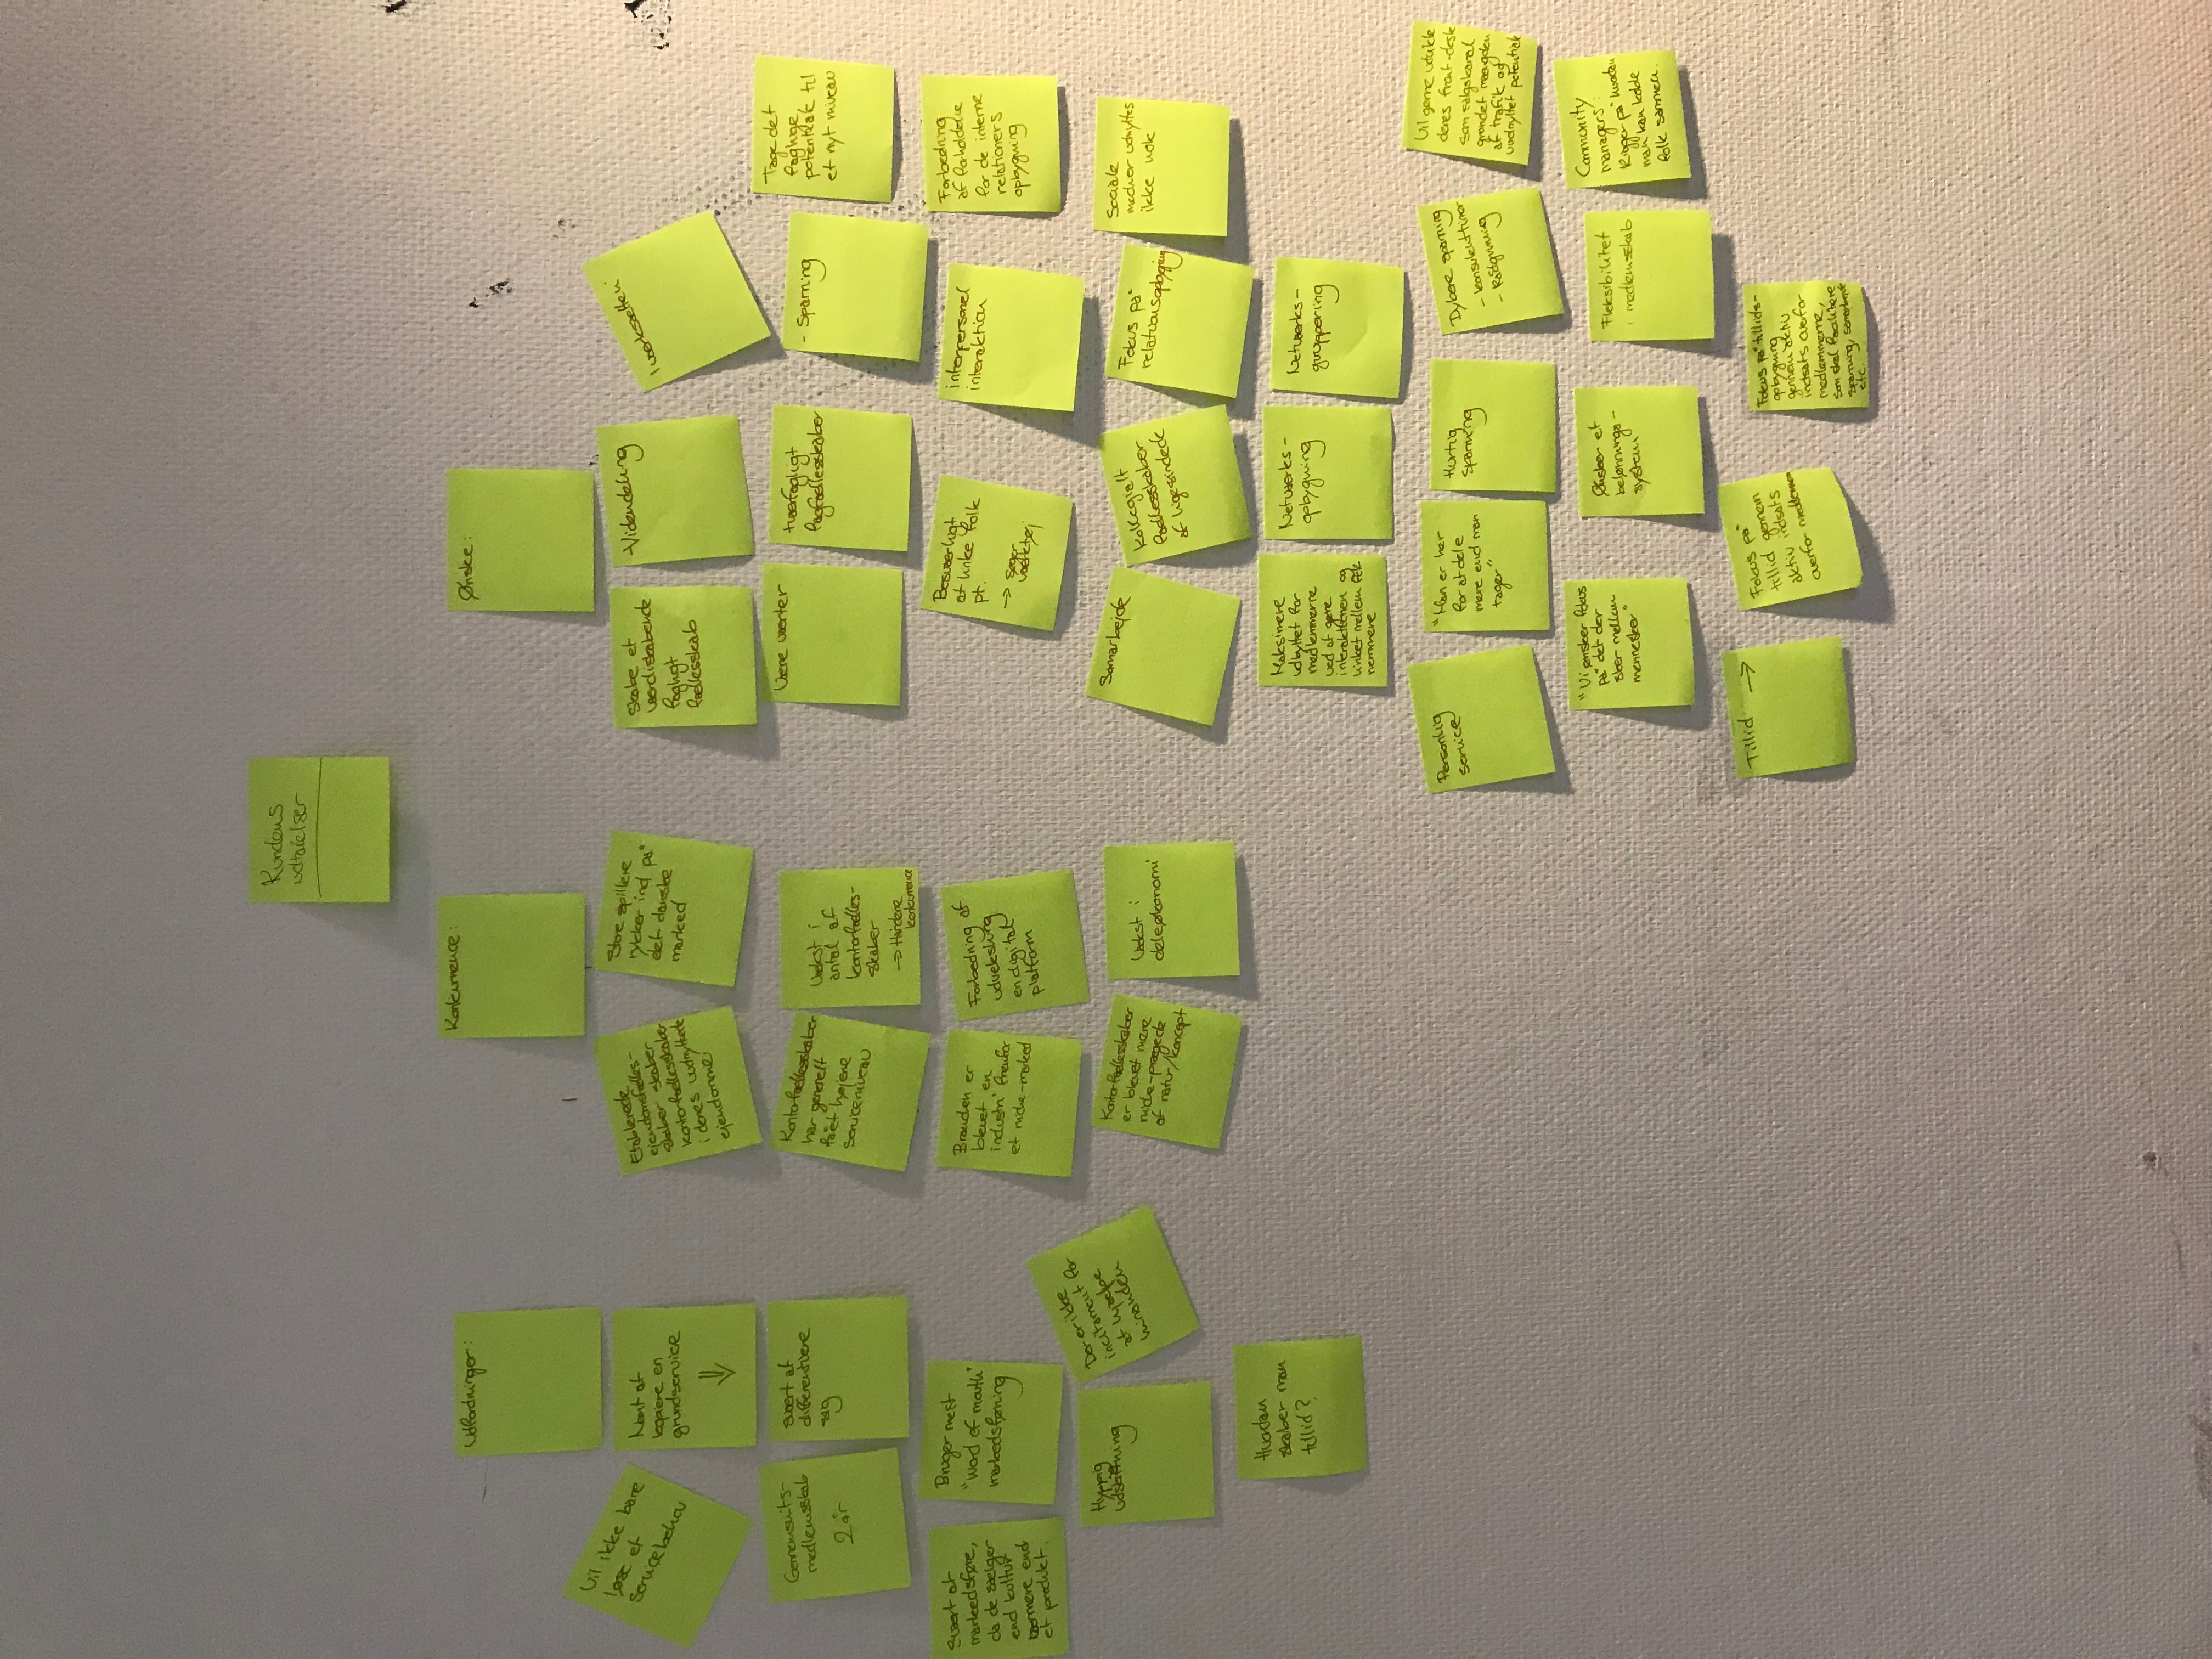 Kundens
udtalelser
Udfordninger:
Vil ikke bare
løse et
servicebehov
Nemt at
kopiere en
grundservice
↓
Gennemsnits-
medlemsskab
2 år
svært at
differentiere
sig
Svært at
markedsføre,
da de sælger
end kultur
nærmere end
et produkt.
Bruger mest
"word of mouth"
markedsføring
Hyppig
udskiftning
Der er ikke
incitament for
at hjælpe
hinanden
Hvordan
skaber man
tillid?
Konkurrence:
Etablerede
ejendomsfælles-
skaber skaber
kontorfællesskaber
i deres uudnyttede
ejendomme
Store spillere
rykker ind på
det danske
marked
Kontorfællesskaber
har generelt
fået højere
serviceniveau
Vækst i
antal af
kontorfælles-
skaber
→ Hårdere
konkurrence
Branchen er
blevet en
industri fremfor
et niche-marked
Forbedring af
udveksling
en digital
platform
Kontorfællesskaber
er blevet mere
niche-prægede
af natur/koncept
Vækst i
deleøkonomi
Ønske:
Skabe et
værdiskabende
fagligt
fællesskab
-Videndeling
Iværksætteri
Være værter
tværfagligt
fagfællesskaber
- Sparring
Tage det
faglige
potentiale til
et nyt niveau
Besværligt
at linke folk
pt.
→ søger
værktøj
interpersonel
interaktion
Forbedring
af forholdene
for de interne
relationers
opbygning
Samarbejde
Kollegialt
fællesskaber
af ligesindede
Fokus på
relationsopbygning
Sociale
medier udnyttes
ikke nok
Maksimere
udbyttet for
medlemmerne
ved at gøre
interaktionen og
linket mellem folk
nemmere
Netværks-
opbygning
Netværks-
gruppering
Personlig
service
"Man er her
for at dele
mere end man
tager"
Hurtig
sparring
Dybere sparring
- konsulenttimer
- Rådgivning
Vil gerne udvikle
deres front-desk
som salgskanal
grundet mængden
af trafik og
uudnyttet potentiale
"Vi ønsker fokus
på det der
sker mellem
mennesker"
Ønsker et
belønnings-
system
Fleksibilitet
i medlemsskab
Community
managers:
Kigger på hvordan
man kan koble
folk sammen.
Tillid →
Fokus på
tillid gennem
aktiv indsats
overfor medlemmer
Fokus på tillids-
opbygning
gennem aktiv
indsats overfor
medlemmerne,
som skal facilitere
sparring, samarbejde
etc.